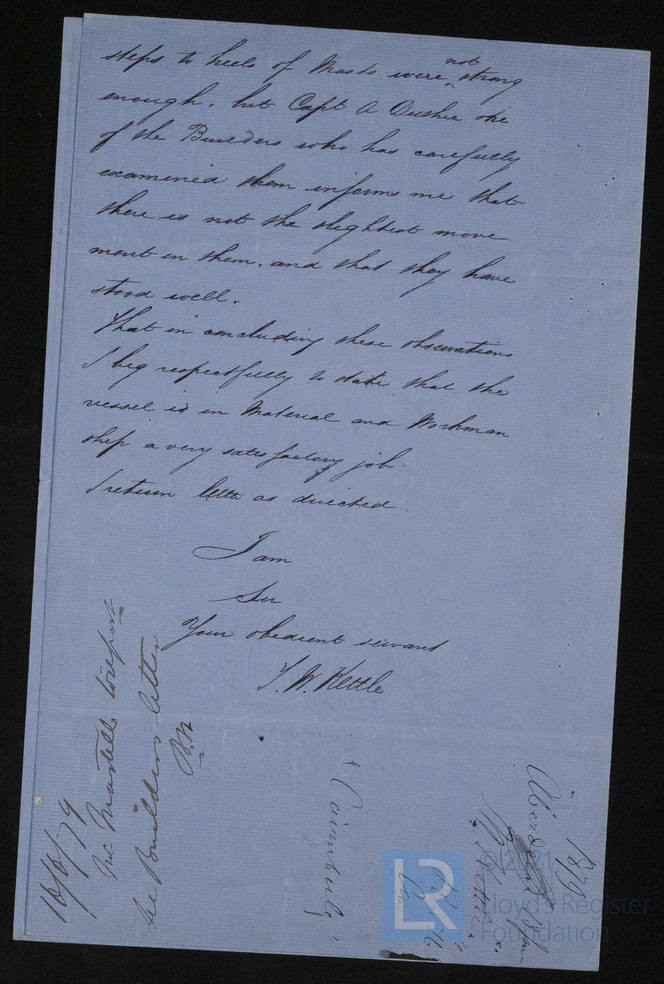 steps to heels of Masts were not strong
enough, but Capt A Duthie one
of the Builders who has carefully
examined them informs me that
there is not the slightest move
ment in them, and that they have
stood well.
That in concluding these observations
I beg respectfully to state that the
vessel is in Material and Workman
ship a very satisfactory job.
I return letter as directed.
I am
Sir
Your obedient servant
T. W. Kettle
16/6/79
Mr. Martell to report
see Builders letter
"Cairnbulg"
Aberdeen
1879
Kettle
© 2021
Lloyd's Register
Foundation
LR